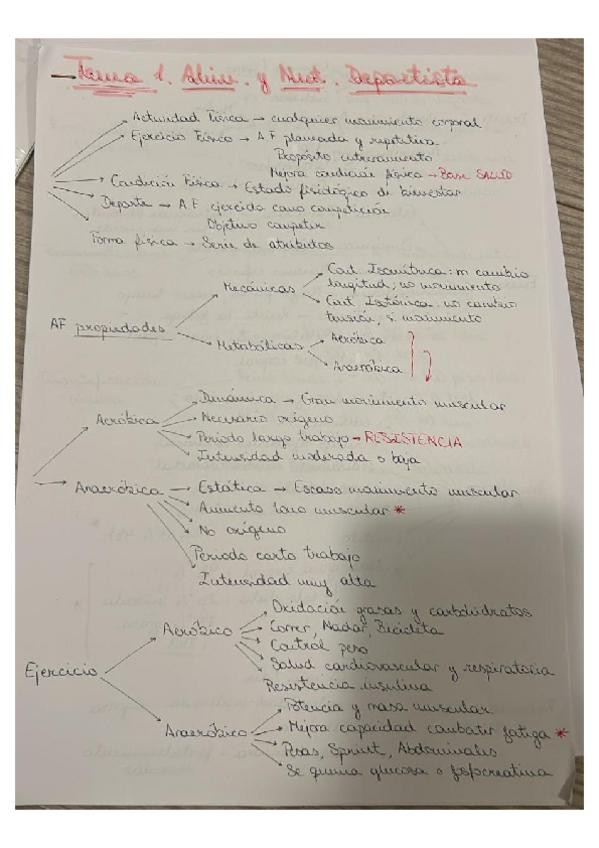 → Tema 1. Alim. y Nut. Deportista
Actividad Física → cualquier movimiento corporal
Ejercicio Físico → A.F planeada y repetitiva
Propósito entrenamiento
Mejora condición física → Base SALUD
Condición Física → Estado fisiológico di bienestar
Deporte → A.F ejercida como competición
Objetivo competir
Forma física → Serie de atributos
AF propiedades
Mecánicas
Cont. Isométrica: no cambio
longitud, no movimiento
Cont. Isotónica: no cambio
tensión, si movimiento
Metabólicas
Aeróbica
Anaeróbica
Aeróbica
Dinámica → Gran movimiento muscular
Necesario oxígeno
Periodo largo trabajo → RESISTENCIA
Intensidad moderada o baja
Anaeróbica → Estática → Escaso movimiento muscular
Aumento tono muscular *
No oxígeno
Periodo corto trabajo
Intensidad muy alta
Ejercicio
Aeróbico
Oxidación grasas y carbohidratos
Correr, Nadar, Bicicleta
Control peso
Salud cardiovascular y respiratoria
Resistencia insulina
Anaeróbico
Potencia y masa muscular
Mejora capacidad combatir fatiga *
Pesas, Sprint, Abdominales
Se quema glucosa o fosfocreatina